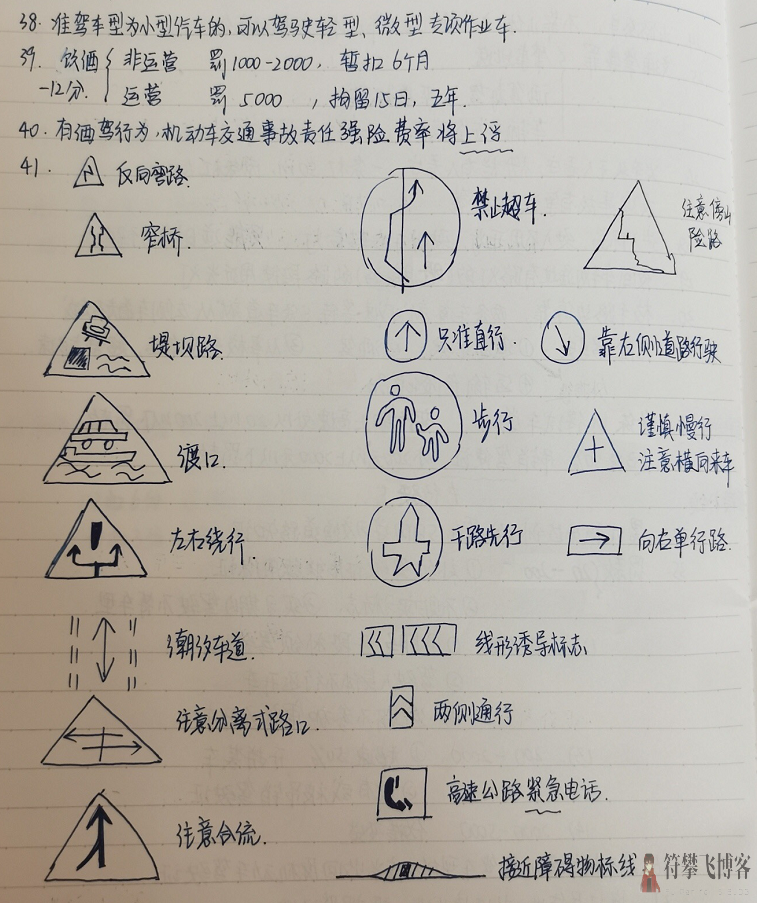 38. 准驾车型为小型汽车的,可以驾驶轻型、微型专项作业车.
39. 饮酒 非运营 罚1000-2000, 暂扣6个月
-12分. 运营 罚5000 ,拘留15日,五年.
40. 有酒驾行为,机动车交通事故责任强险费率将上浮
41. 反向弯路.
禁止超车.
注意傍山
险路
窄桥.
堤坝路.
只准直行.
靠右侧道路行驶
步行
渡口.
谨慎慢行
注意横向来车
左右绕行.
干路先行
向右单行路.
潮汐车道.
线形诱导标志
注意分离式路口.
两侧通行
高速公路紧急电话.
注意合流.
接近障碍物标线
符攀飞博客